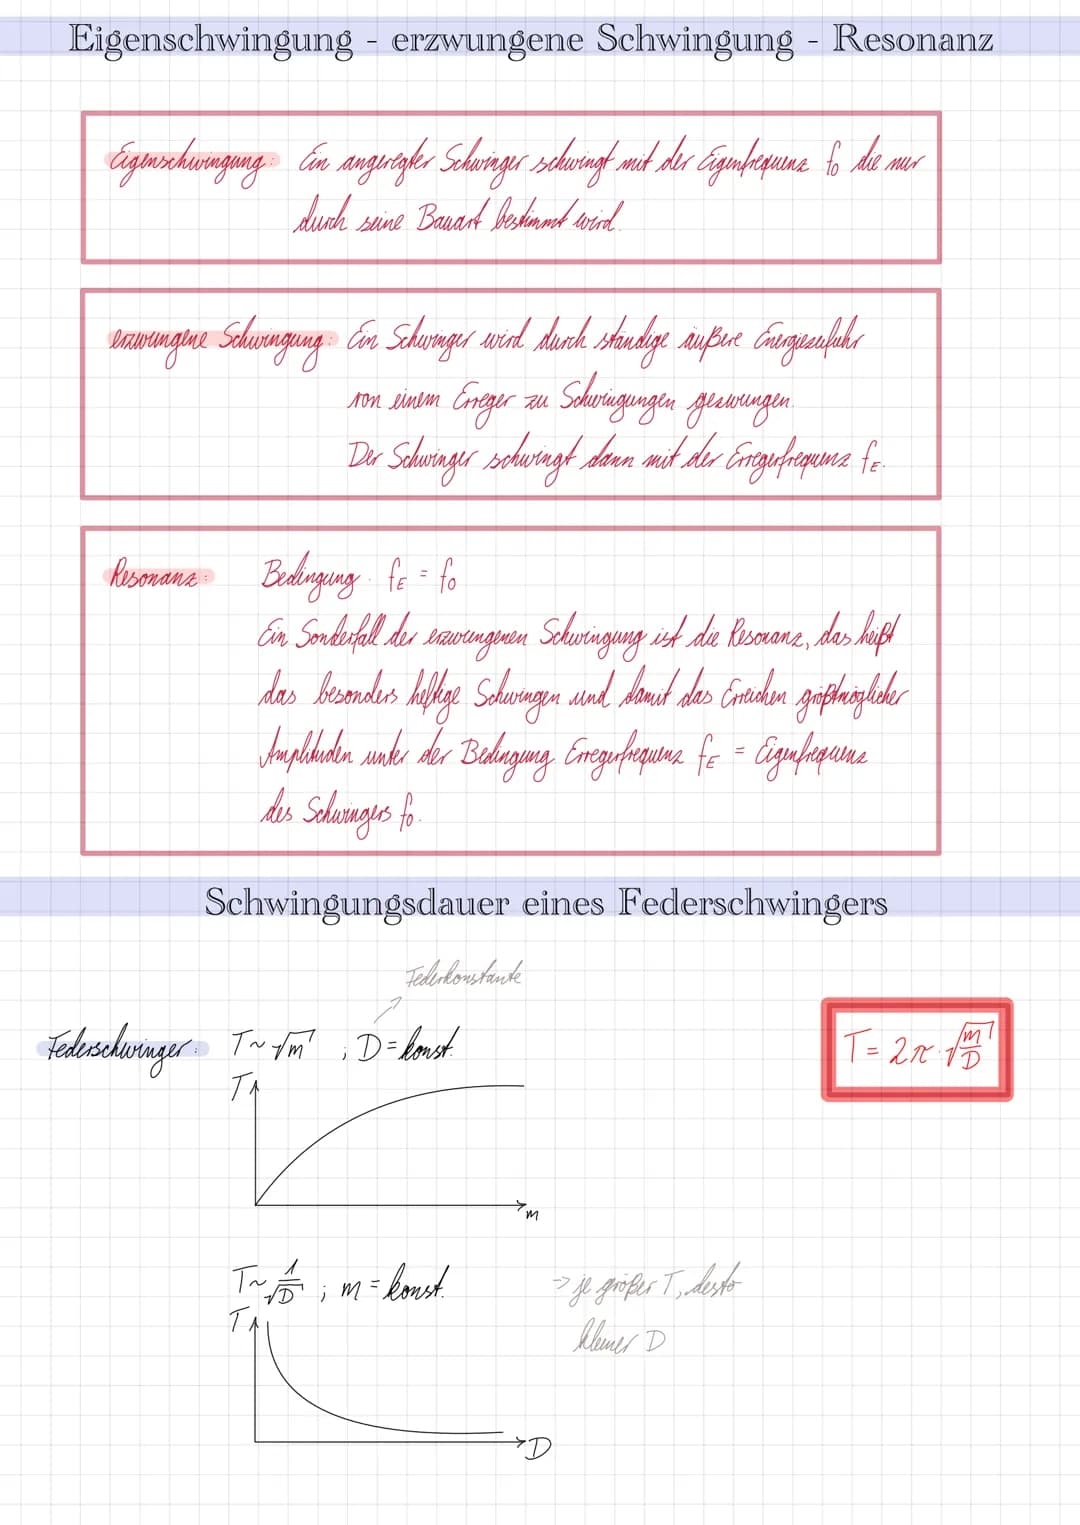 Eigenschwingung - erzwungene Schwingung - Resonanz
Eigenschwingung: Ein angeregter Schwinger schwingt mit der Eigenfrequenz f₀ die nur
durch seine Bauart bestimmt wird.
erzwungene Schwingung: Ein Schwinger wird durch ständige äußere Energiezufuhr
von einem Erreger zu Schwingungen gezwungen.
Der Schwinger schwingt dann mit der Erregerfrequenz f_E.
Resonanz: Bedingung: f_E = f₀
Ein Sonderfall der erzwungenen Schwingung ist die Resonanz, das heißt
das besonders heftige Schwingen und damit das Erreichen größtmöglicher
Amplituden unter der Bedingung Erregerfrequenz f_E = Eigenfrequenz
des Schwingers f₀.
Schwingungsdauer eines Federschwingers
Federkonstante
Federschwinger: T ~ √m ; D = konst.
T = 2π · √(m/D)
T
m
T ~ 1/√D ; m = konst.
T
D
→ je größer T, desto
kleiner D